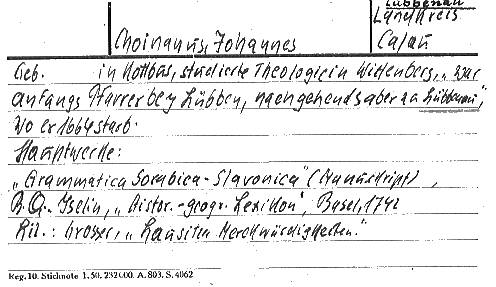 Lübbenau
Landkreis
Choinanus, Johannes Calau
Geb. in Kottbus, studierte Theologie in Wittenberg, „war
anfangs Pfarrer bey Lübben, nachgehends aber zu Lübbenau",
wo er 1664 starb.
Hauptwerke:
„Grammatica Sorabica-Slavonica" (Manuskript),
B.Q. Iselin, „Histor.-geogr. Lexikon", Basel, 1742
Rit.: Grosser, „Lausitzer Merckwürdigkeiten."
Reg. 10. Stichnote 1. 50. 232000. A. 803. S. 4062